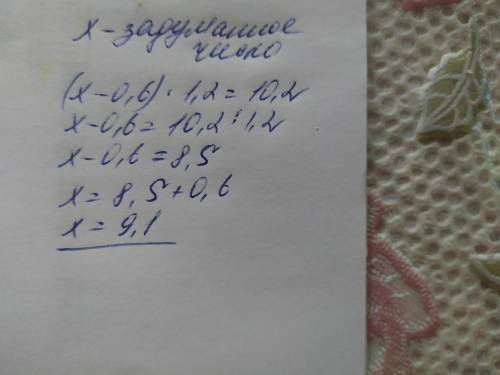 x - задуманное
число
(x-0,6) · 1,2 = 10,2
x-0,6 = 10,2 : 1,2
x-0,6 = 8,5
x = 8,5+0,6
x = 9,1